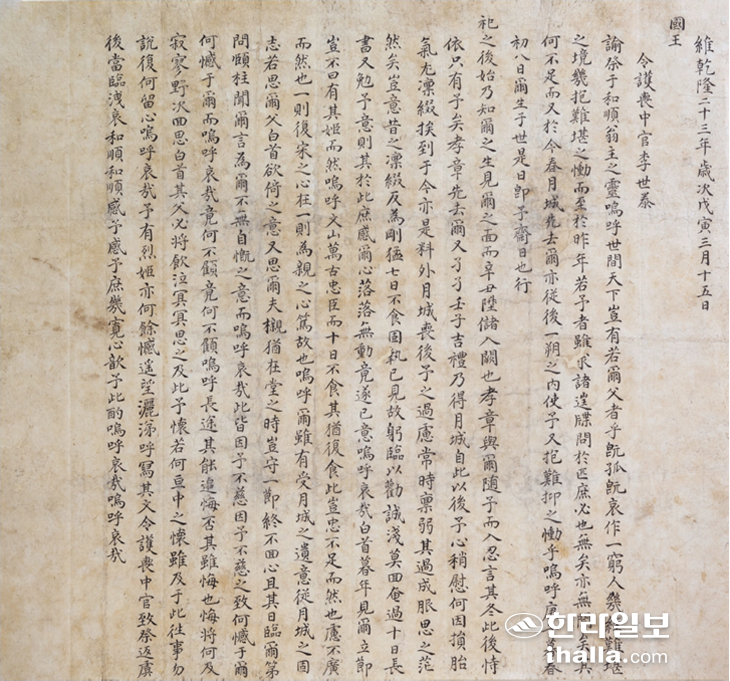 維乾隆二十三年歲次戊寅三月十五日
國王
令護喪中官李世泰
諭祭于和順翁主之靈嗚呼世間天下豈有若爾父者乎旣孤旣哀作一窮人幾經難堪
之境幾抱難堪之慟而至於昨年若予者雖求諸遑牒問於匹庶必也無矣亦無矣其
何不足而又於今春月城先去爾亦從後一朔之內使予又抱難抑之慟乎嗚呼庚春
初八日爾生于世是日卽予齋日也行
祀之後始乃知爾之生見爾之面而辛丑陞儲入闕也孝章與爾隨予而入忍言其冬此後恃
依只有予矣孝章先去爾又孑孑壬子吉禮乃得月城自此以後予心稍慰何因損胎
氣尫凜綴挨到于今亦是料外月城喪後予之過慮常時稟弱其過成服思之茫
然矣豈意昔之凜綴反爲剛猛七日不食固執已見故躬臨以勸誠淺莫回奄過十日長
書又勉予意則其於此庶感爾心落落無動竟遂已意嗚呼哀哉白首暮年見爾立節
豈不曰有其姬而然嗚呼文山萬古忠臣而十日不食其猶復食此豈忠不足而然也慮不廣
而然也一則復宋之心在一則爲親之心篤故也嗚呼爾雖有受月城之遺意從月城之固
志若思爾父白首欲倚之意又思爾夫櫬猶在堂之時豈守一節終不回心且其日臨爾第
問頤柱聞爾言爲爾不無自慨之意而嗚呼哀哉此皆因予不慈因予不慈之致何憾于爾
何憾于爾而嗚呼哀哉竟何不顧竟何不顧嗚呼長逝其能追悔否其雖悔也悔將何及
寂寥野次回思白首其父必將飮泣冥冥思之及此予懷若何亘中之懷雖及于此往事勿
說復何留心嗚呼哀哉予有烈姬亦何餘憾遙望灑涕呼寫其文令護喪中官致祭返虞
後當臨淺哀和順和順感予感予庶幾寬心歆予此酌嗚呼哀哉嗚呼哀哉
한라일보
ihalla.com